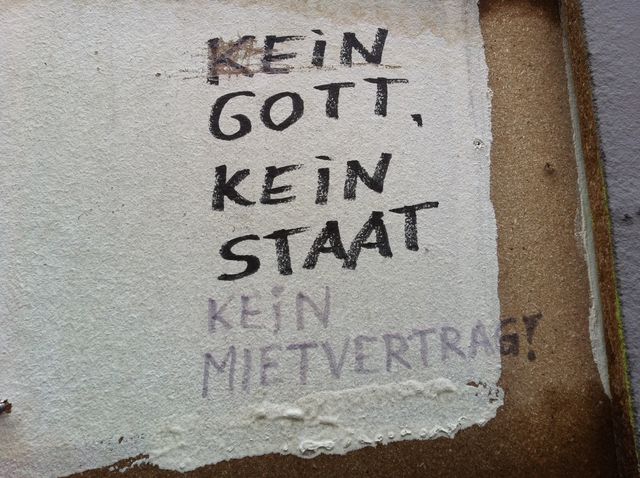 KEIN
GOTT,
KEIN
STAAT
KEIN
MIETVERTRAG!